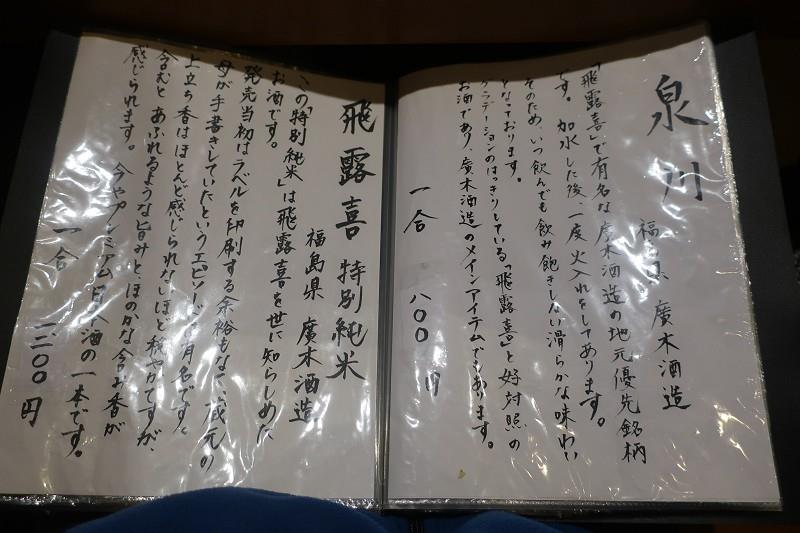 泉川
福島県 廣木酒造
「飛露喜」で有名な廣木酒造の地元優先銘柄
です。加水した後、一度火入れをしてあります。
そのため、いつ飲んでも飲み飽きしない滑らかな味わい
となっております。
グラデーションのはっきりしている「飛露喜」と好対照の
お酒であり、廣木酒造のメインアイテムでもあります。
一合 八〇〇円
飛露喜 特別純米
福島県 廣木酒造
この「特別純米」は飛露喜を世に知らしめた
お酒です。
発売当初はラベルを印刷する余裕もなく、蔵元の
母が手書きしていたというエピソードは有名です。
上立ち香はほとんど感じられないほど穏やかですが、
含むとあふれるような旨みと、ほのかな含み香が
感じられます。今やプレミアム日本酒の一本です。
一合 一二〇〇円